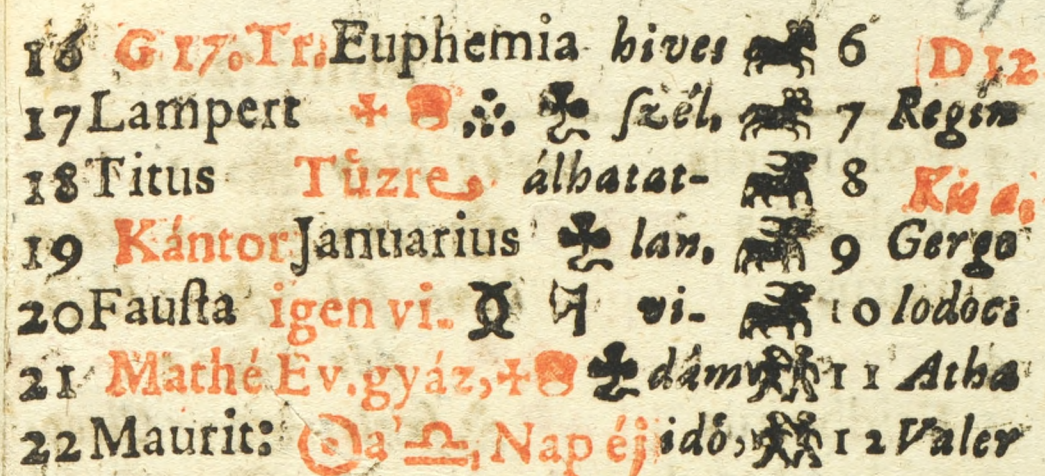 16 G 17. Tr. Euphemia hives 6 D 12
17 Lampert szél, 7 Regin
18 Titus Tûzre álhatat- 8 Kis a
19 Kántor Januarius lan, 9 Gergo
20 Fauſta igen vi. vi- 10 Iodoci
21 Mathé Ev. gyáz, dám 11 Atha
22 Maurit: a' ♎, Nap éj idô, 12 Valer